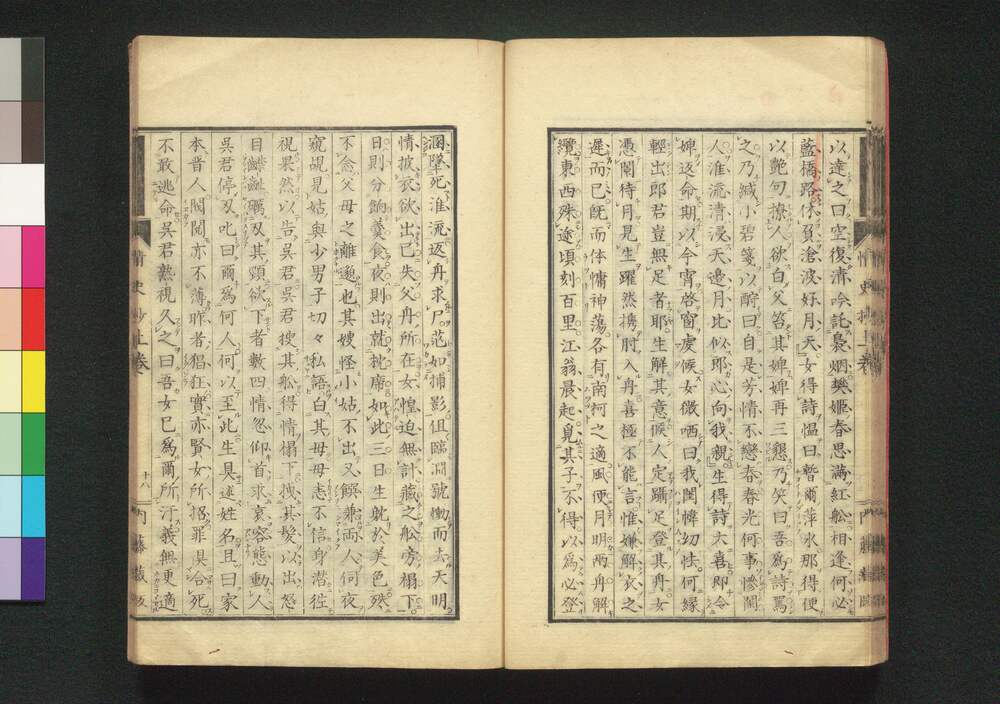 以達之曰空復清吟託裊烟樊姬春思滿紅船相逢何必
藍橋路休負滄波好月天女得詩愠曰暫爾萍水那得便
以艶句撩人欲白父笞其婢婢再三懇乃笑曰吾為詩罵
之乃緘小碧箋以酧曰自是芳情不戀春春光何事惨閨
人淮流清浸天邊月比似郎心向我親生得詩大喜即令
婢返命期以今宵啓窗虔候女微哂曰我閨幃幼怯何縁
輕出郎君豈無足者耶生解其意候人定躡足登其舟女
憑闌待月見生躍然携肘入舟喜極不能言惟嫌解衣之
遲而已既而体慵神蕩各有南柯之適風便月明兩舟解
纜東西殊途頃刻百里江翁晨起覓其子不得以為必登
溷墜死淮流返舟求尸茫如捕影但臨淵號慟而去天明
情披衣欲出已失父舟所在女惶迫無計藏之舩旁榻下
日則分餉羹食夜則出就枕席如此三日生躭於美色殊
不念父母之離逖也其嫂怪小姑不出又饌兼兩人何夜
窺覘見姑與少男子切々私語白其母母恚不信身潜徃
視果然以告吳君吳君搜其舩得情榻下拽其髮以出怒
目齦齜礪刃其頸欲下者數四情忽仰首求哀容態動人
吳君停刃叱曰爾為何人何以至此生具述姓名且曰家
本晋人閥閲亦不薄昨者猖狂實亦賢女所招罪俱合死
不敢逃命吳君熟視久之曰吾女已為爾所汙義無更適
情史抄上卷
十八